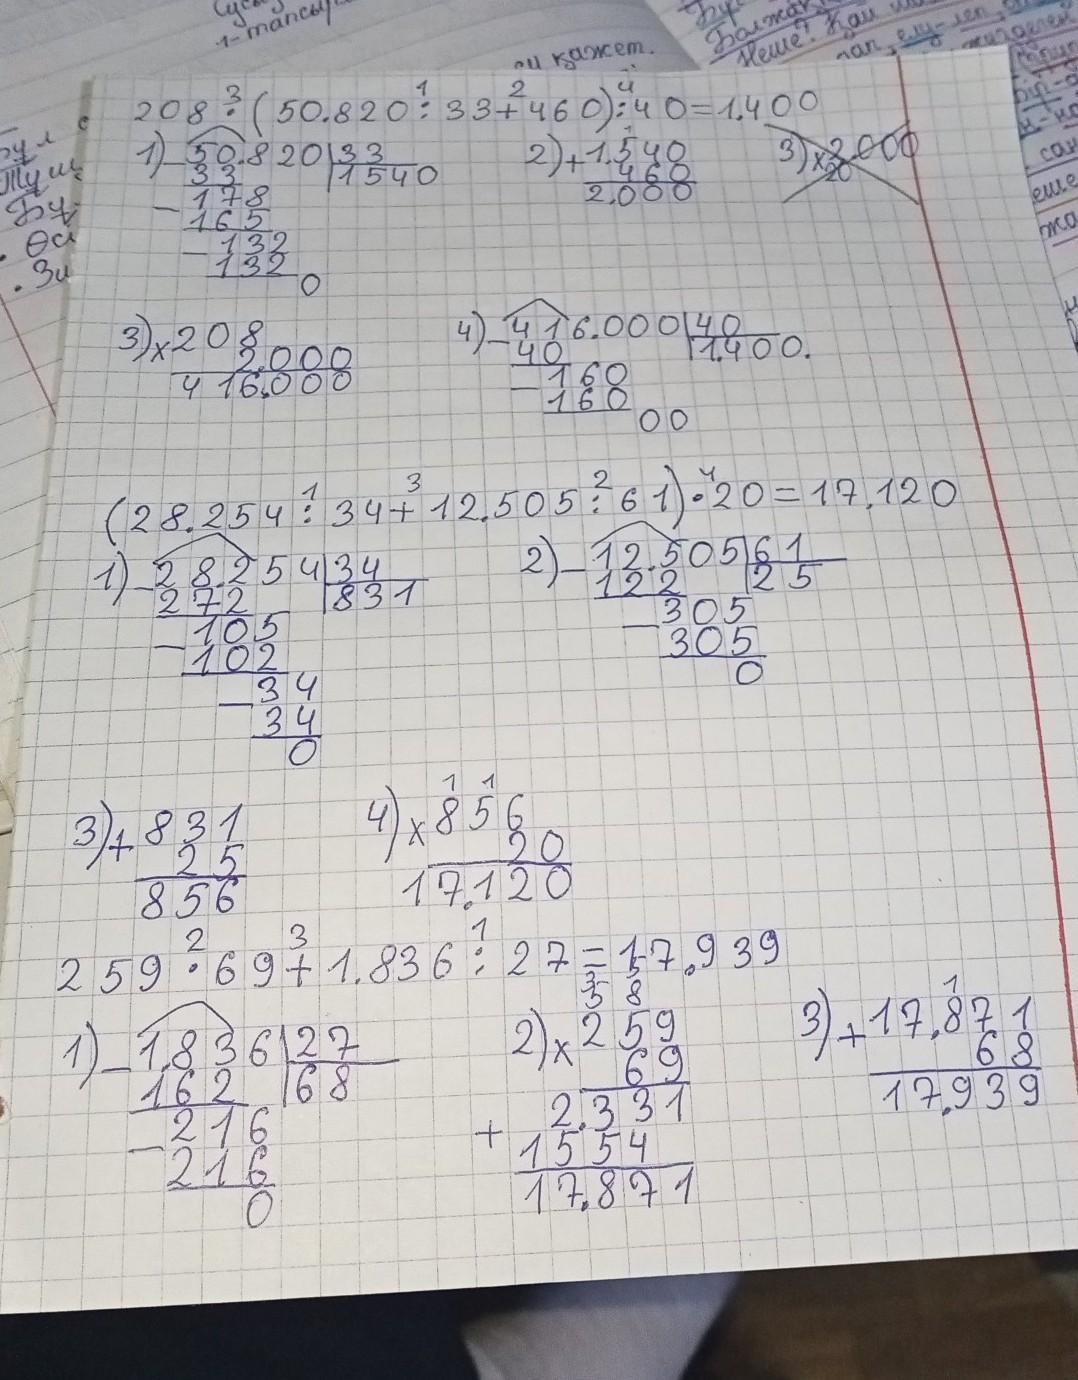 1-тапсыр
қажет.
208:(50.820:33+460):40=1.400
3 1 2 4
1) 50.820|33
33 |1540
-178
165
-132
132
0
2) +1.540
460
2.000
3) x2.000
20
3) x208
2.000
416.000
4) -416.000|40
40 |1.400.
-160
160
00
(28.254:34+12.505:61)·20=17.120
1 3 2 4
1) -28.254|34
272 |831
-105
102
-34
34
0
2) -12.505|61
122 |25
-305
305
0
3) +831
25
856
4) x856
1 1
20
17.120
259·69+1.836:27=17.939
2 3 1
1) -1.836|27
162 |68
-216
216
0
2) x259
3 5
5 8
69
2.331
+
1554
17.871
3) +17.871
1
68
17.939